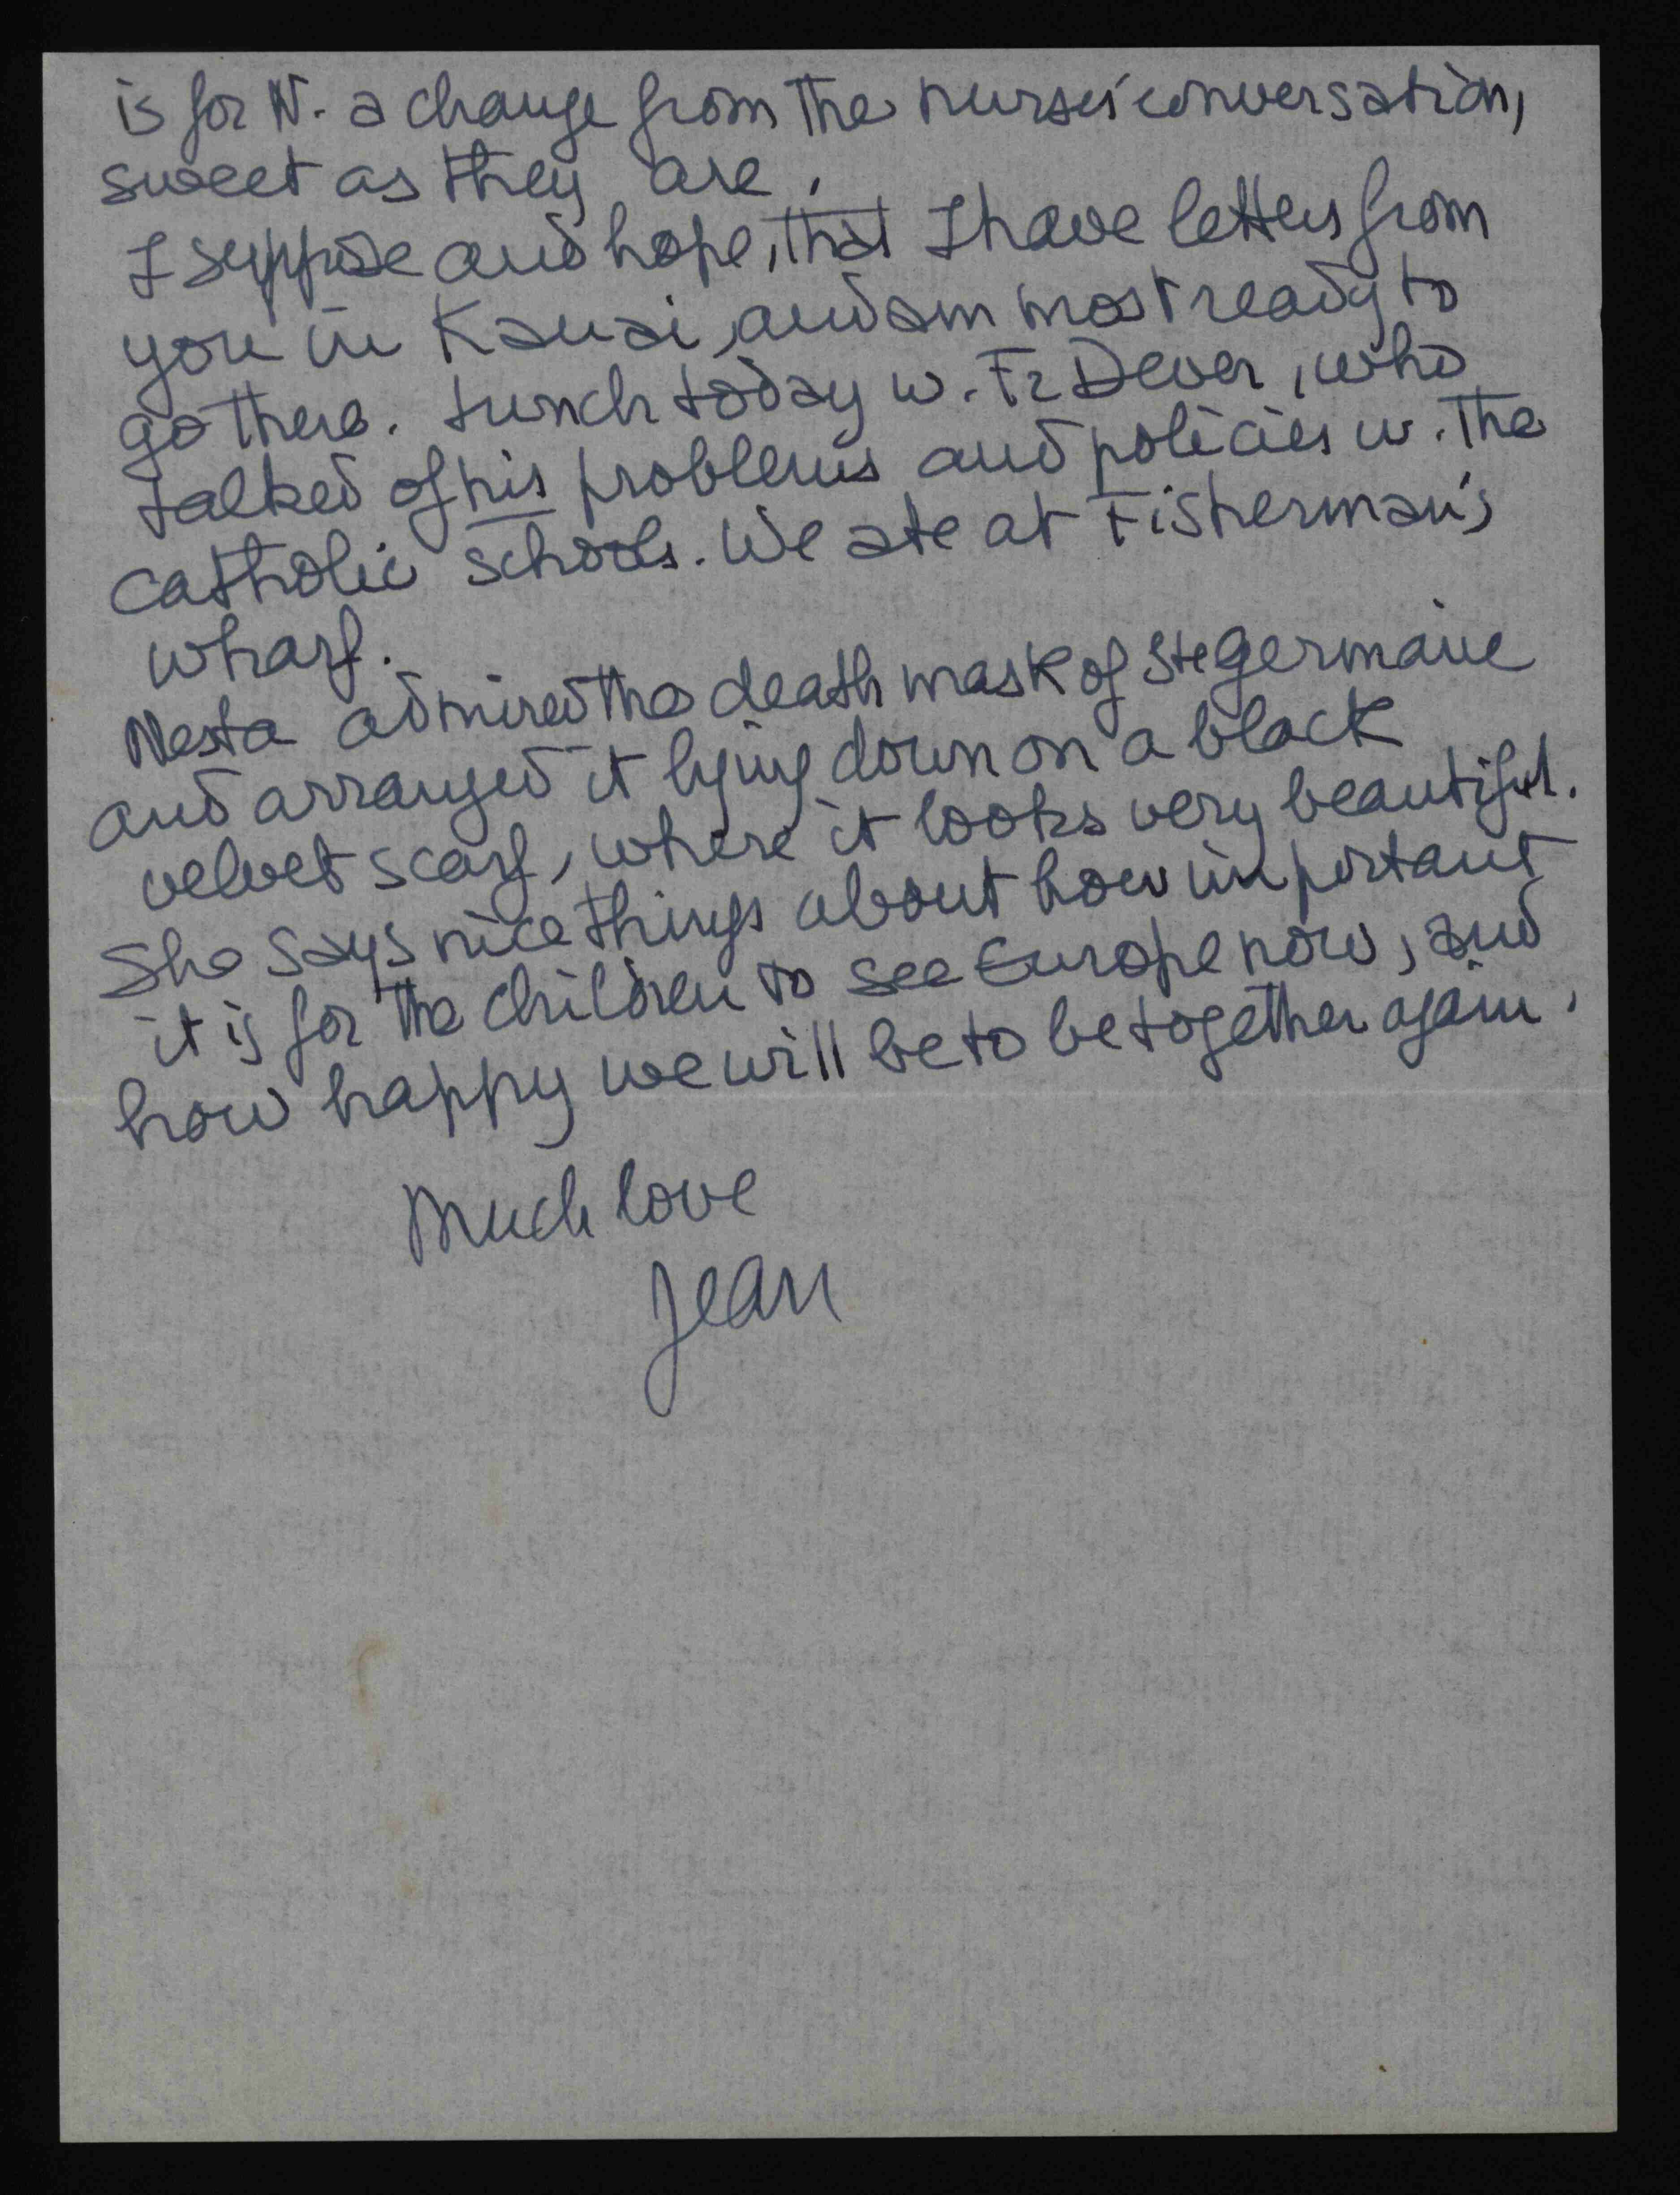 is for N. a change from the nurses' conversation,
sweet as they are.
I suppose and hope, that I have letters from
you in Kauai, and am most ready to
go there. Lunch today w. Fr Dever, who
talked of his problems and policies w. the
Catholic schools. We ate at Fisherman's
wharf.
Nesta admired the death mask of Ste Germaine
and arranged it lying down on a black
velvet scarf, where it looks very beautiful.
She says nice things about how important
it is for the children to see Europe now, and
how happy we will be to be together again.
Much love
Jean